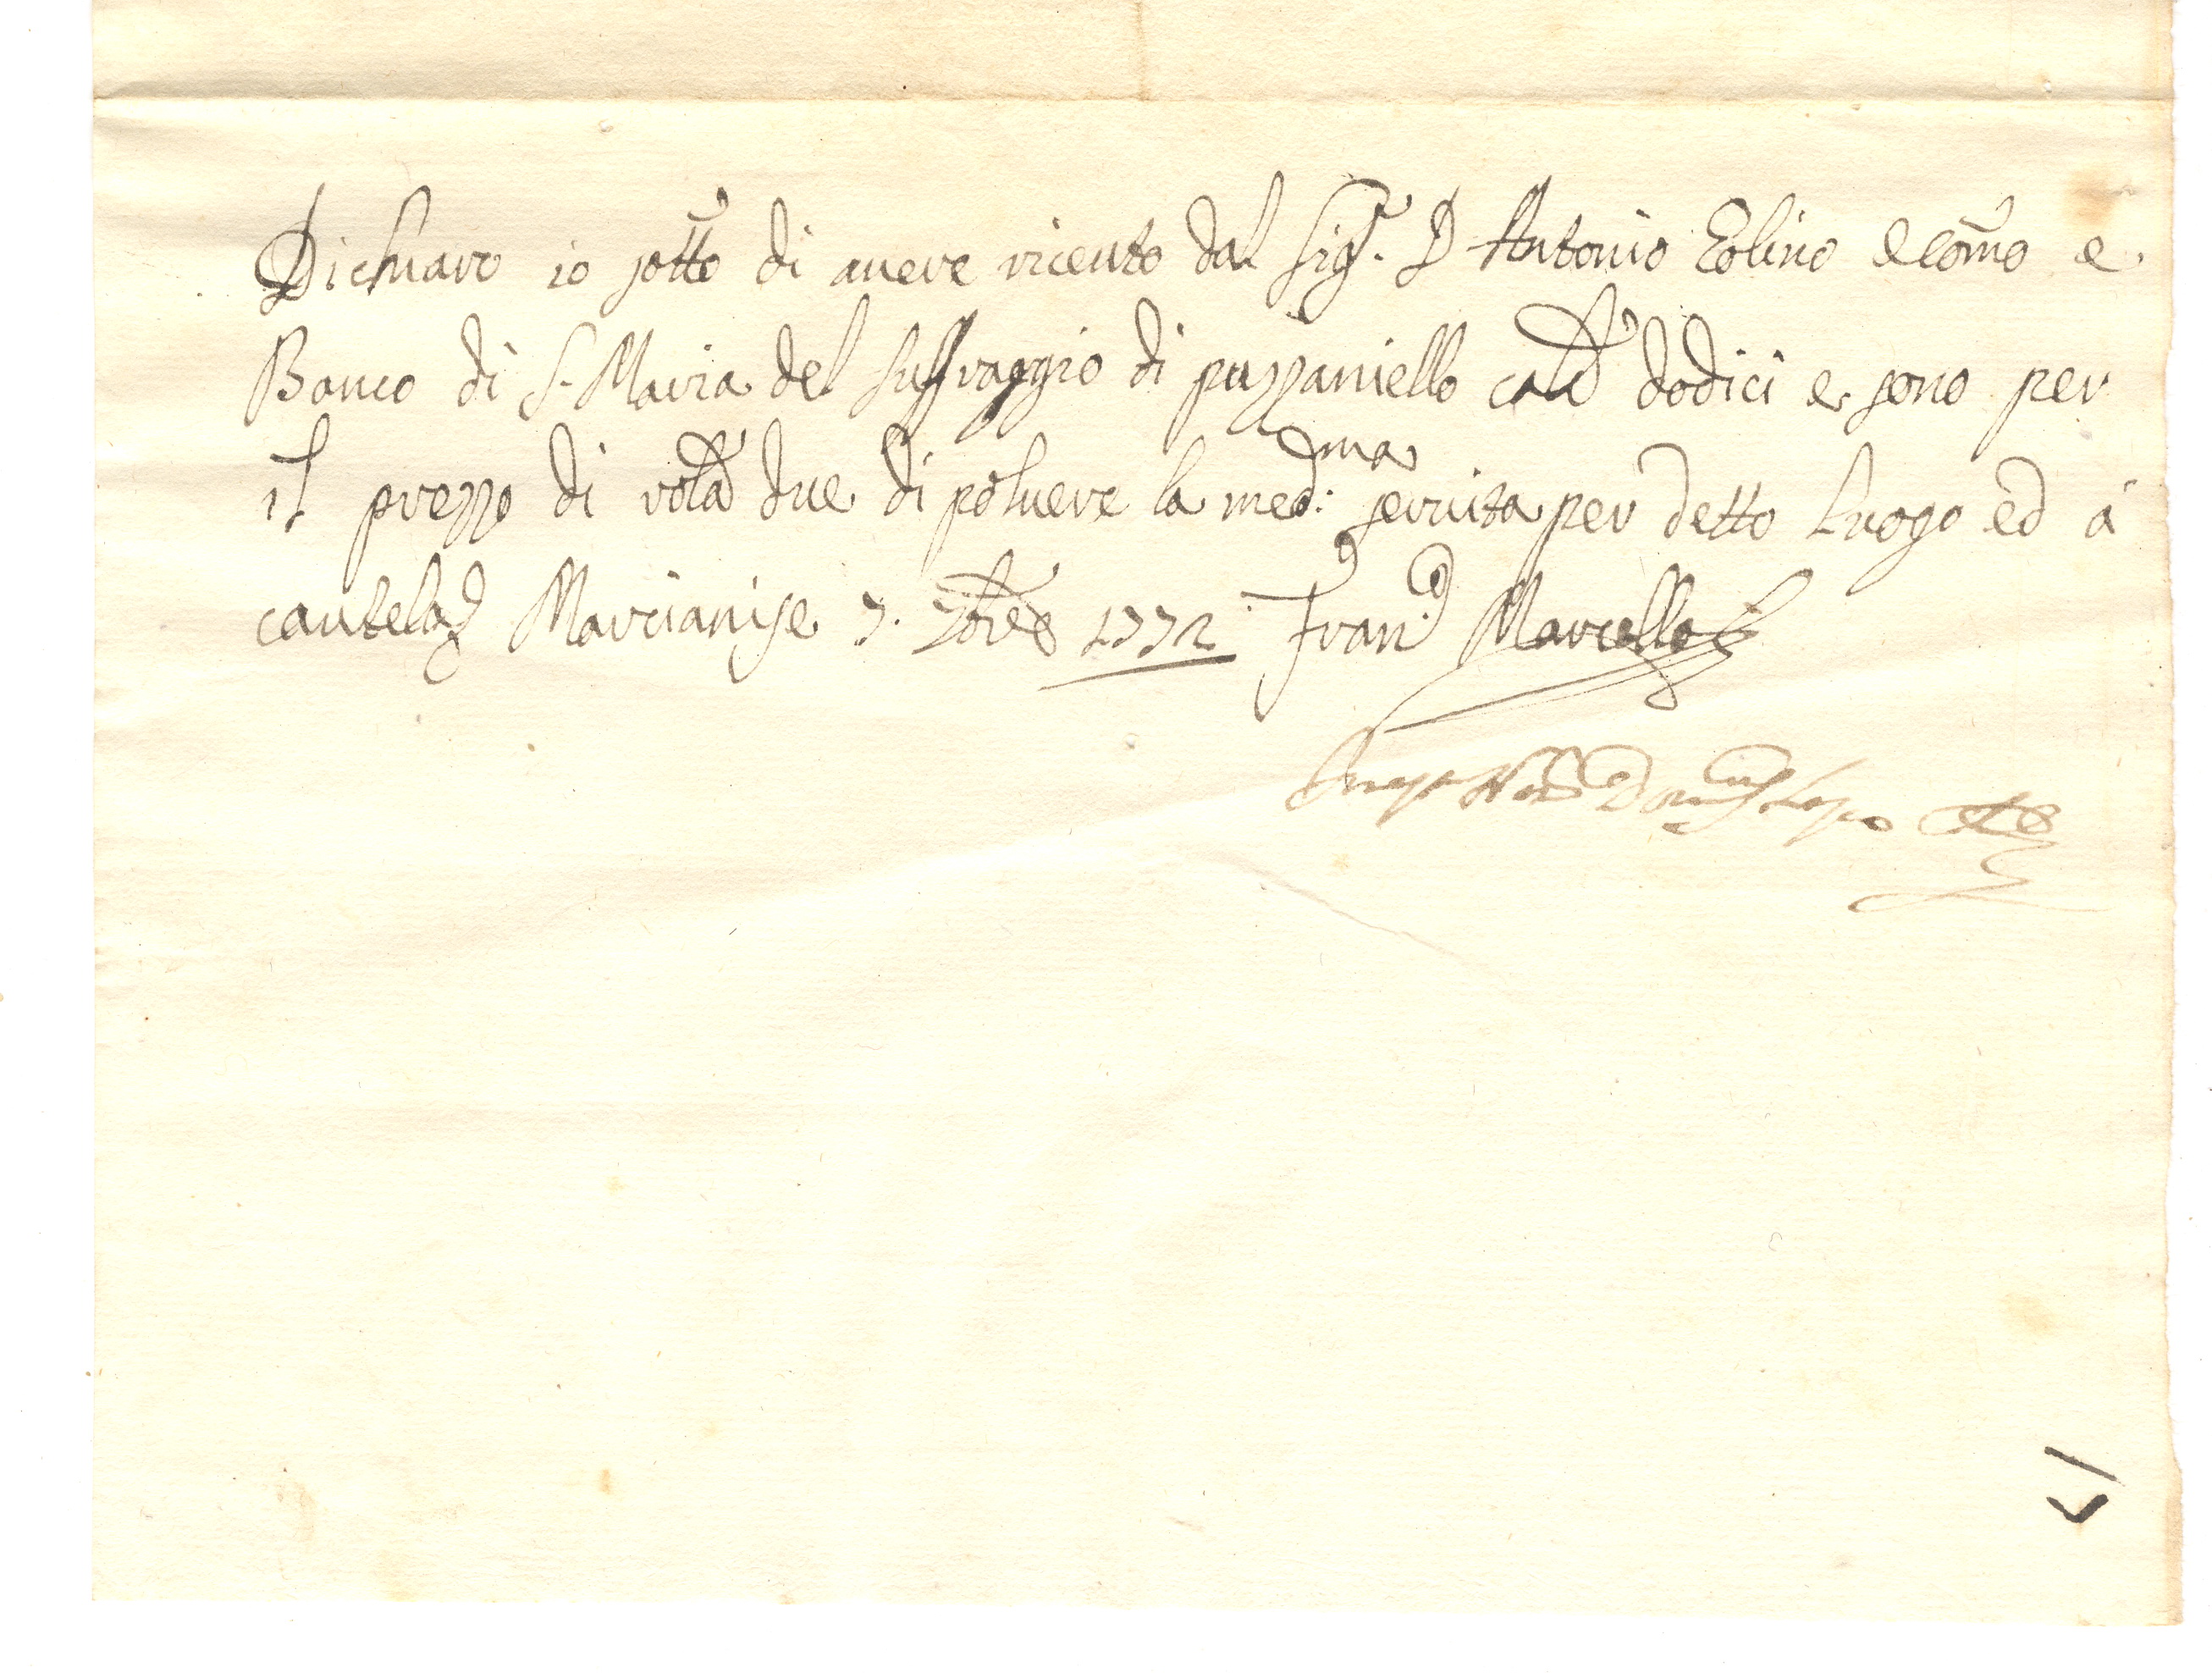 Dichiaro io sotto di avere riceuto dal Sig.r D Antonio Eolino Econo e
Banco di S. Maria del Suffraggio di puzzaniello carli dodici e sono per
il prezzo di rola due di polvere la med:ma servita per detto Luogo ed a
cautela Marcianise 7. 1772 Fran.co Marcello